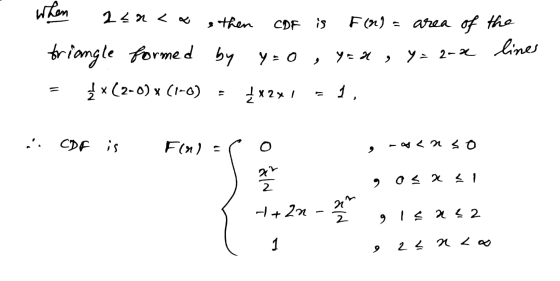 When 2 ≤ x < ∞ , then CDF is F(x) = area of the
triangle formed by y = 0 , y = x , y = 2-x lines
= 1/2 × (2-0) × (1-0) = 1/2 × 2 × 1 = 1.
∴ CDF is F(x) = { 0 , -∞ < x ≤ 0
x²/2 , 0 ≤ x ≤ 1
-1 + 2x - x²/2 , 1 ≤ x ≤ 2
1 , 2 ≤ x < ∞